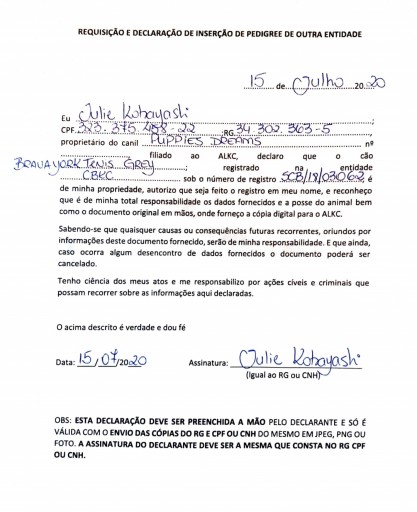 REQUISIÇÃO E DECLARAÇÃO DE INSERÇÃO DE PEDIGREE DE OUTRA ENTIDADE
15 de Julho 2020
Eu Julie Kobayashi;
CPF. 383.375.488-22 ;RG. 34 302 363-5;
proprietário do canil PUPPIES DREAMS nº
filiado ao ALKC, declaro que o cão
BRAVA YORK TENIS GREY; registrado na entidade
CBKC sob o número de registro SCB/18/03062, é
de minha propriedade, autorizo que seja feito o registro em meu nome, e reconheço
que é de minha total responsabilidade os dados fornecidos e a posse do animal bem
como o documento original em mãos, onde forneço a cópia digital para o ALKC.
Sabendo-se que quaisquer causas ou consequências futuras recorrentes, oriundos por
informações deste documento fornecido, serão de minha responsabilidade. E que ainda,
caso ocorra algum desencontro de dados fornecidos o documento poderá ser
cancelado.
Tenho ciência dos meus atos e me responsabilizo por ações cíveis e criminais que
possam recorrer sobre as informações aqui declaradas.
O acima descrito é verdade e dou fé
Data: 15/07/2020 Assinatura: Julie Kobayashi
(Igual ao RG ou CNH)
OBS: ESTA DECLARAÇÃO DEVE SER PREENCHIDA A MÃO PELO DECLARANTE E SÓ É
VÁLIDA COM O ENVIO DAS CÓPIAS DO RG E CPF OU CNH DO MESMO EM JPEG, PNG OU
FOTO. A ASSINATURA DO DECLARANTE DEVE SER A MESMA QUE CONSTA NO RG CPF
OU CNH.